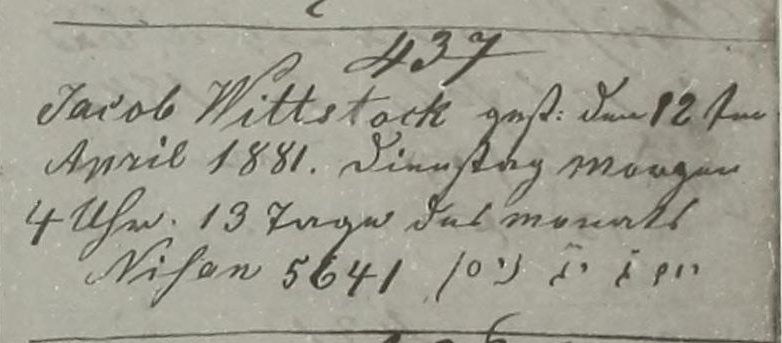 437
Jacob Wittstock gest: den 12ten
April 1881. Dienstag Morgen
4 Uhr. 13 Tage des monats
Nisan 5641 יום ג׳ י״ג ניסן